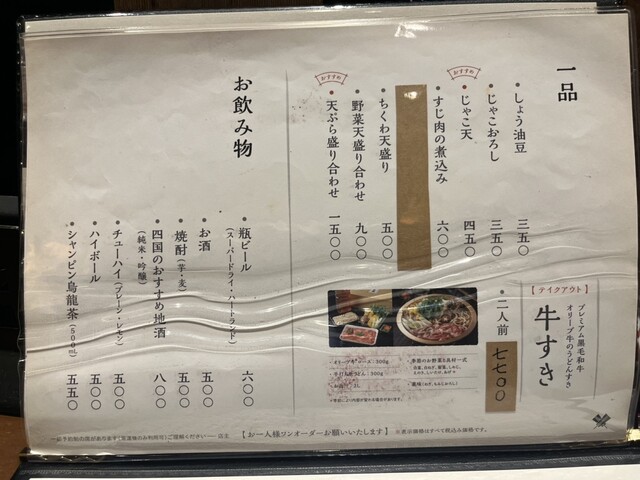 一品
しょう油豆 三五〇
じゃこおろし 三五〇
おすすめ
じゃこ天 四五〇
すじ肉の煮込み 六〇〇
ちくわ天盛り 五〇〇
野菜天盛り合わせ 九〇〇
おすすめ
天ぷら盛り合わせ 一五〇〇
【テイクアウト】
プレミアム黒毛和牛
オリーブ牛のうどんすき
牛すき
二人前 七七〇〇
お飲み物
瓶ビール 六〇〇
(スーパードライ・ハートランド)
お酒 五〇〇
焼酎(芋・麦) 五〇〇
四国のおすすめ地酒 八〇〇
(純米・吟醸)
チューハイ(プレーン・レモン) 五〇〇
ハイボール 五〇〇
シャンピン烏龍茶(500ml) 五五〇
【お一人様ワンオーダーお願いいたします】
※表示価格はすべて税込み価格です。